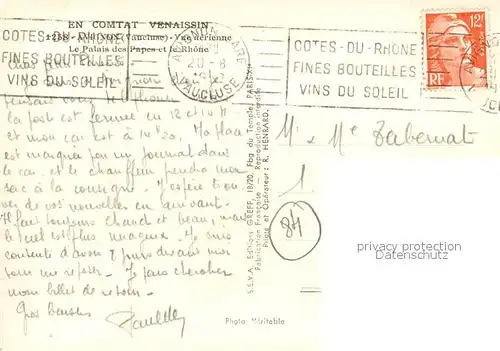 EN COMTAT VENAISSIN
AVIGNON (Vaucluse) - Vue aérienne
Le Palais des Papes et le Rhône
COTES-DU-RHÔNE
FINES BOUTEILLES
VINS DU SOLEIL
AVIGNON GARE
20-8
VAUCLUSE
COTES-DU-RHÔNE
FINES BOUTEILLES
VINS DU SOLEIL
12F
RF
la poste est fermée en 12 et 14 H
et mon car est à 14 h 20. Ma place
est marquée par un journal dans
le car. et le chauffeur prendra mon
sac à la consigne. J'espère trou
ver de vos nouvelles en arrivant.
Il fait toujours chaud et beau, mais
le ciel est plus nuageux. Je suis
contente d'avoir jours devant moi
pour me reposer. Je pars chercher
mon billet de retour.
Gros baisers
Paulette
M. Me Tabernat
1
84
S.E.V.A. Editions GREFF, 18/20, Fbg du Temple, PARIS-XI
Fabrication Française - Reproduction interdite
Pilote et Opérateur : R. HENRARD.
Photo Véritable
privacy protection
watermark